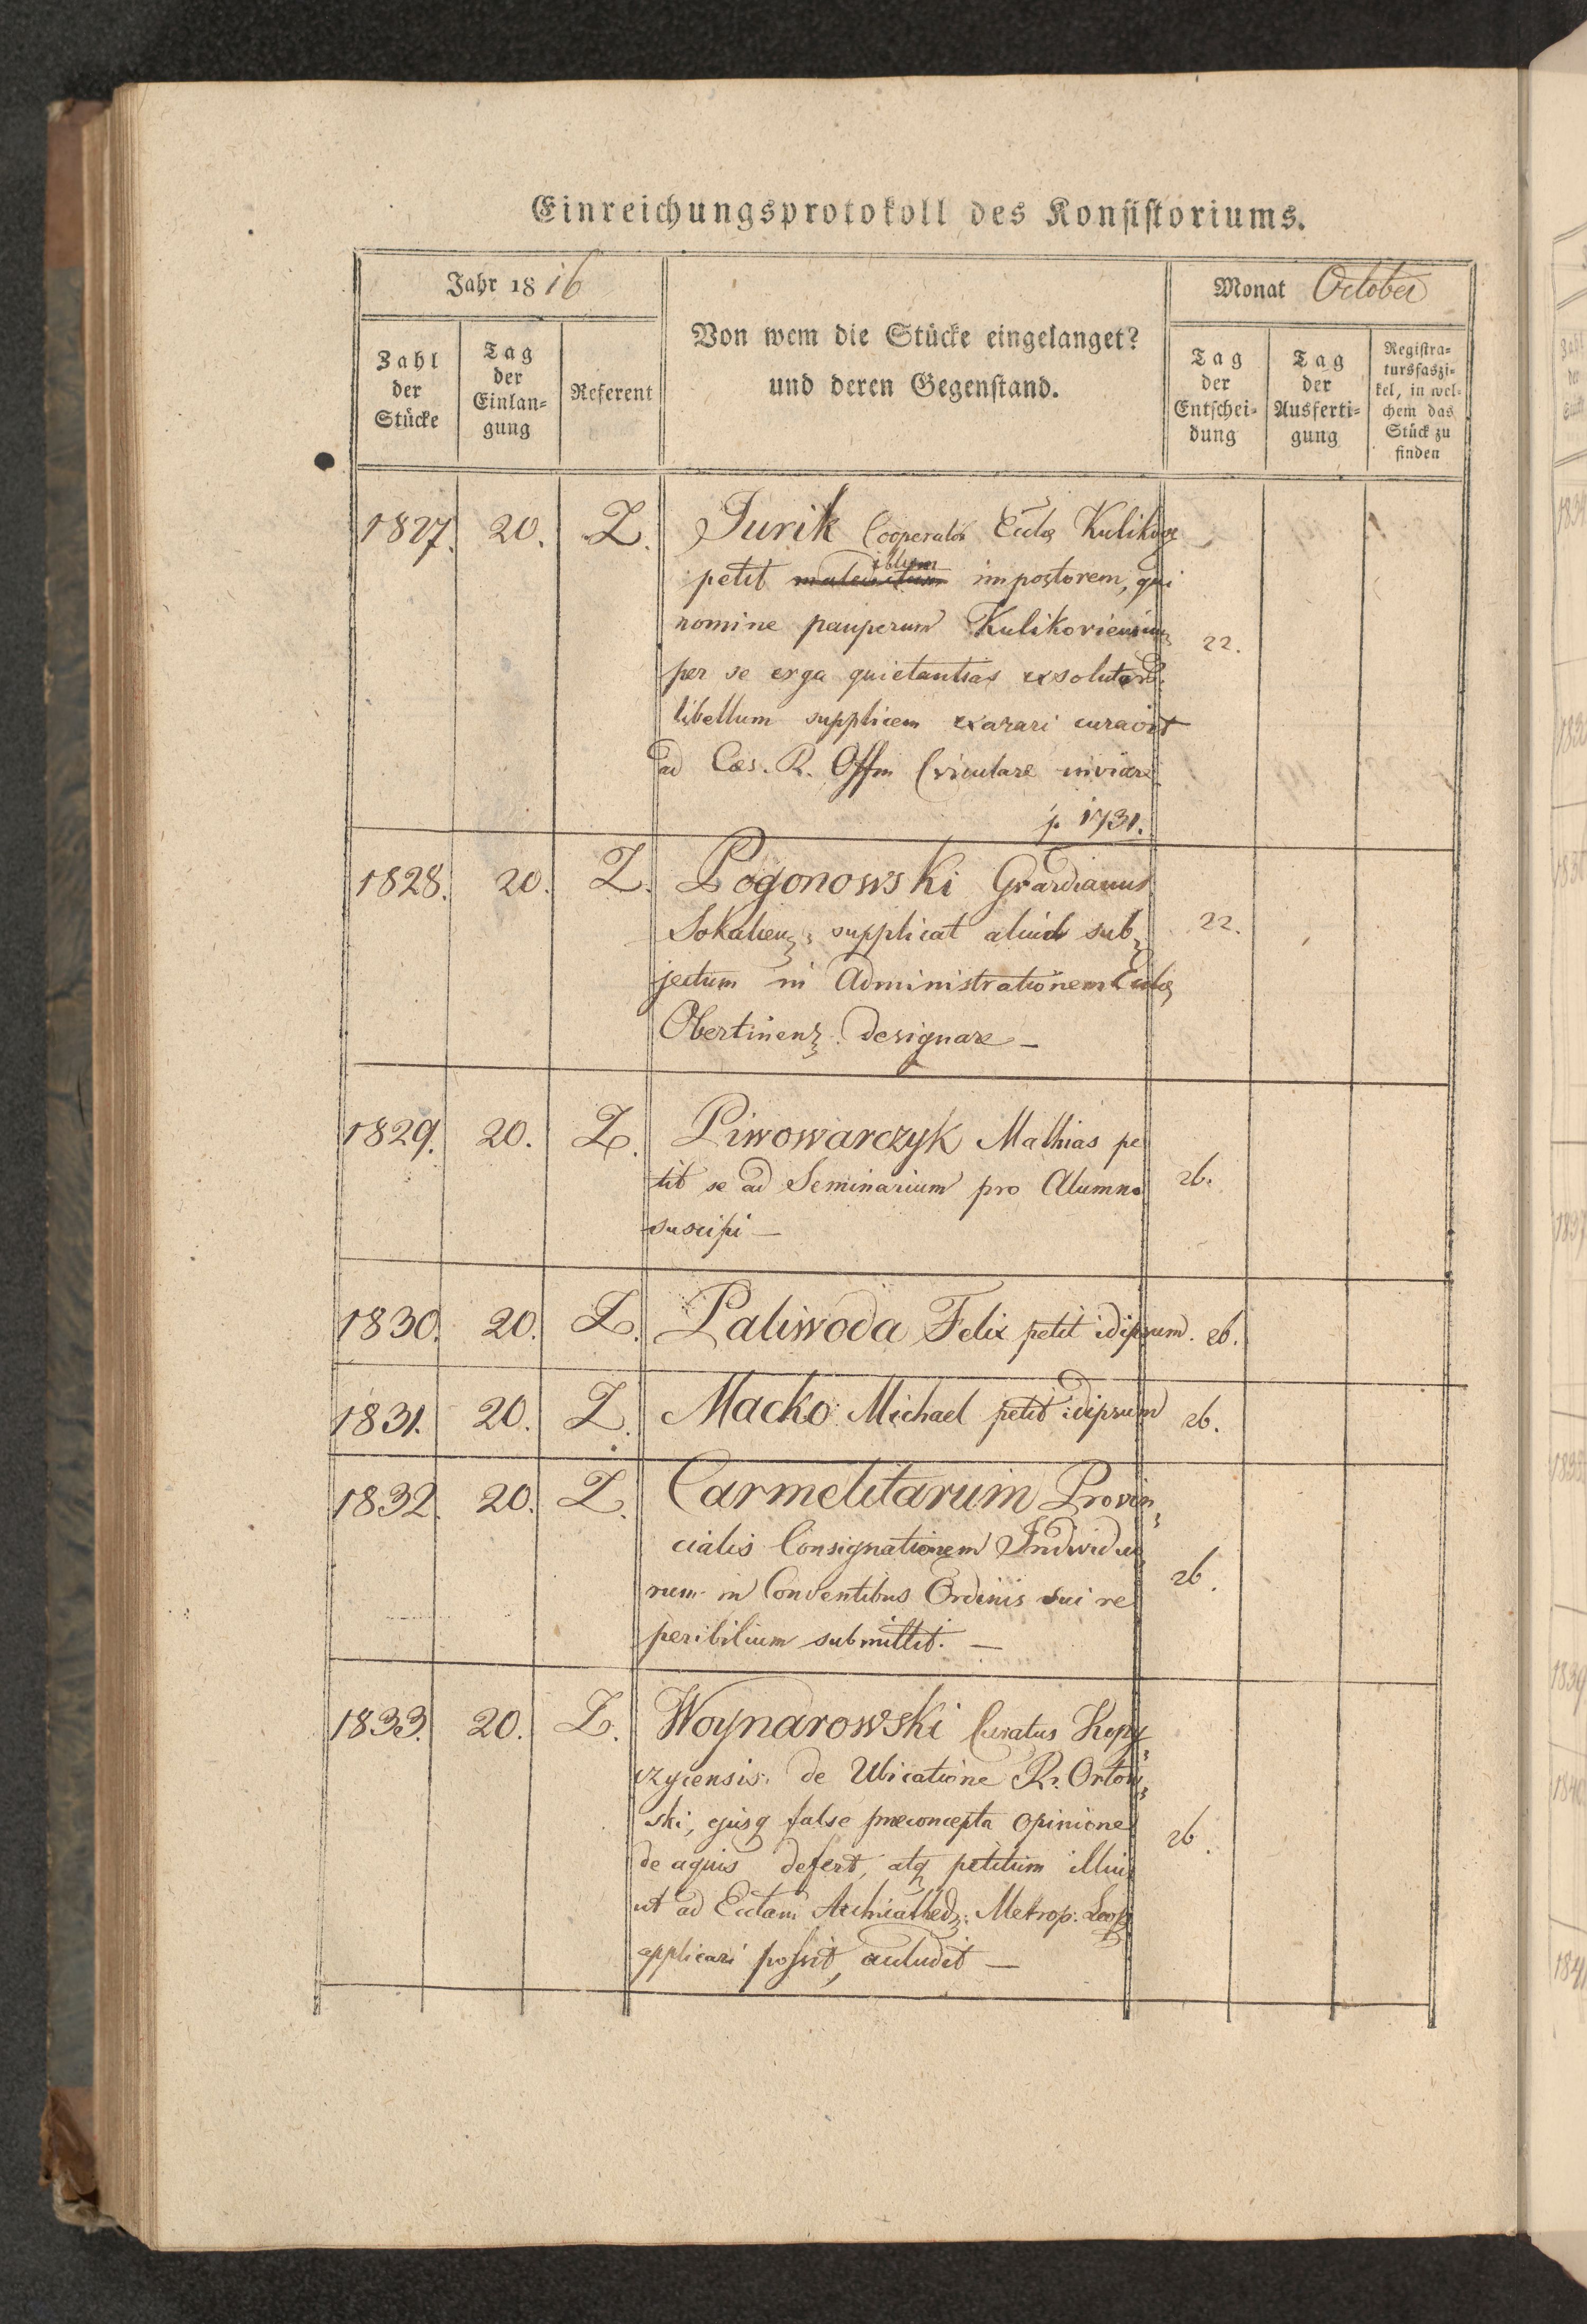 Einreichungsprotokoll des Konsistoriums.
Jahr 1816
Monat October
Zahl der Stücke
Tag der Einlan=gung
Referent
Von wem die Stücke eingelanget?
und deren Gegenstand.
Tag der Entschei=dung
Tag der Ausferti=gung
Registra=tursfaszi=kel, in wel=chem das Stück zu finden
1827. 20. Z. Jurik Cooperator Eccl
petit illum impostorem, qui
nomine pauperum
per se erga quietantias
libellum supplicem exarari curavit 22.
ad Caes. R. Offm Circulare inviare
p. 1731.
1828. 20. Z. Pogonowski Gvardianus
Sokalien: supplicat aliud sub
jectum in Administrationem 22.
Obertinen: designare —
1829. 20. Z. Piwowarczyk Mathias pe
tit se ad Seminarium pro Alumno 26.
suscipi —
1830. 20. Z. Paliwoda Felix petit idipsum. 26.
1831. 20. Z. Macko Michael petit idipsum 26.
1832. 20. Z. Carmelitarum Provin
cialis Consignationem Individuo
rum in Conventibus Ordinis sui re 26.
peribilium submittit. —
1833. 20. Z. Woynarowski Curatus Kopy
czycensis de Ubicatione R. Ortow
ski, ejusq false preconcepta opinione
de aquis defert, atq petitum illius 26.
ut ad Metrop:
applicari possit, —